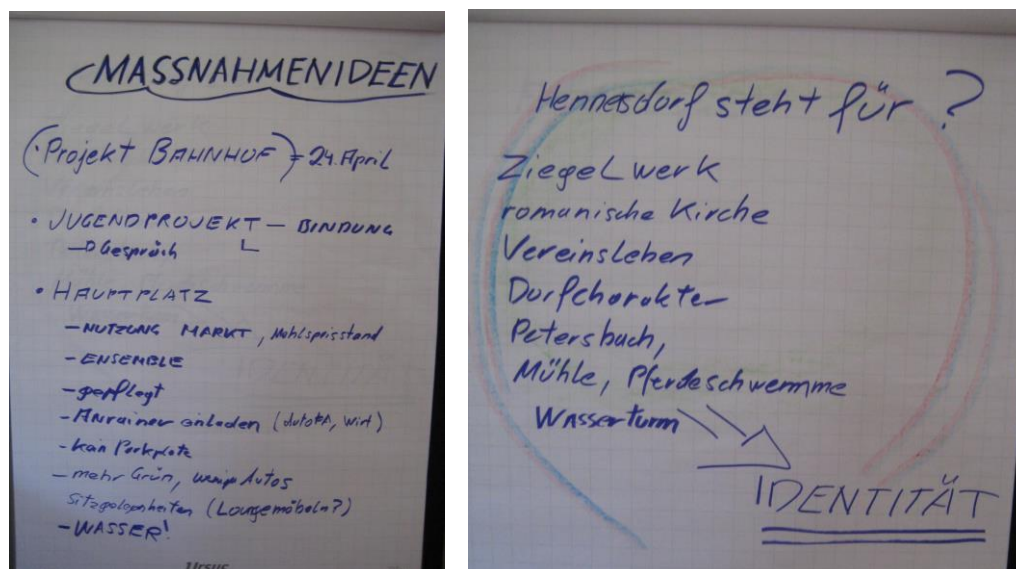 MASSNAHMENIDEEN
(• Projekt BAHNHOF) = 24. April
• JUGENDPROJEKT — BINDUNG
→ Gespräch
• HAUPTPLATZ
- NUTZUNG MARKT, Mehlspeisstand
- ENSEMBLE
- gepflegt
- Anrainer einladen (, Wirt)
- kein Parkplatz
- mehr Grün, wenig Autos
Sitzgelegenheiten (Loungemöbeln?)
- WASSER!
Ursus
Hennersdorf steht für ?
Ziegelwerk
romanische Kirche
Vereinsleben
Dorfcharakter
Petersbach,
Mühle, Pferdeschwemme
Wasserturm
IDENTITÄT